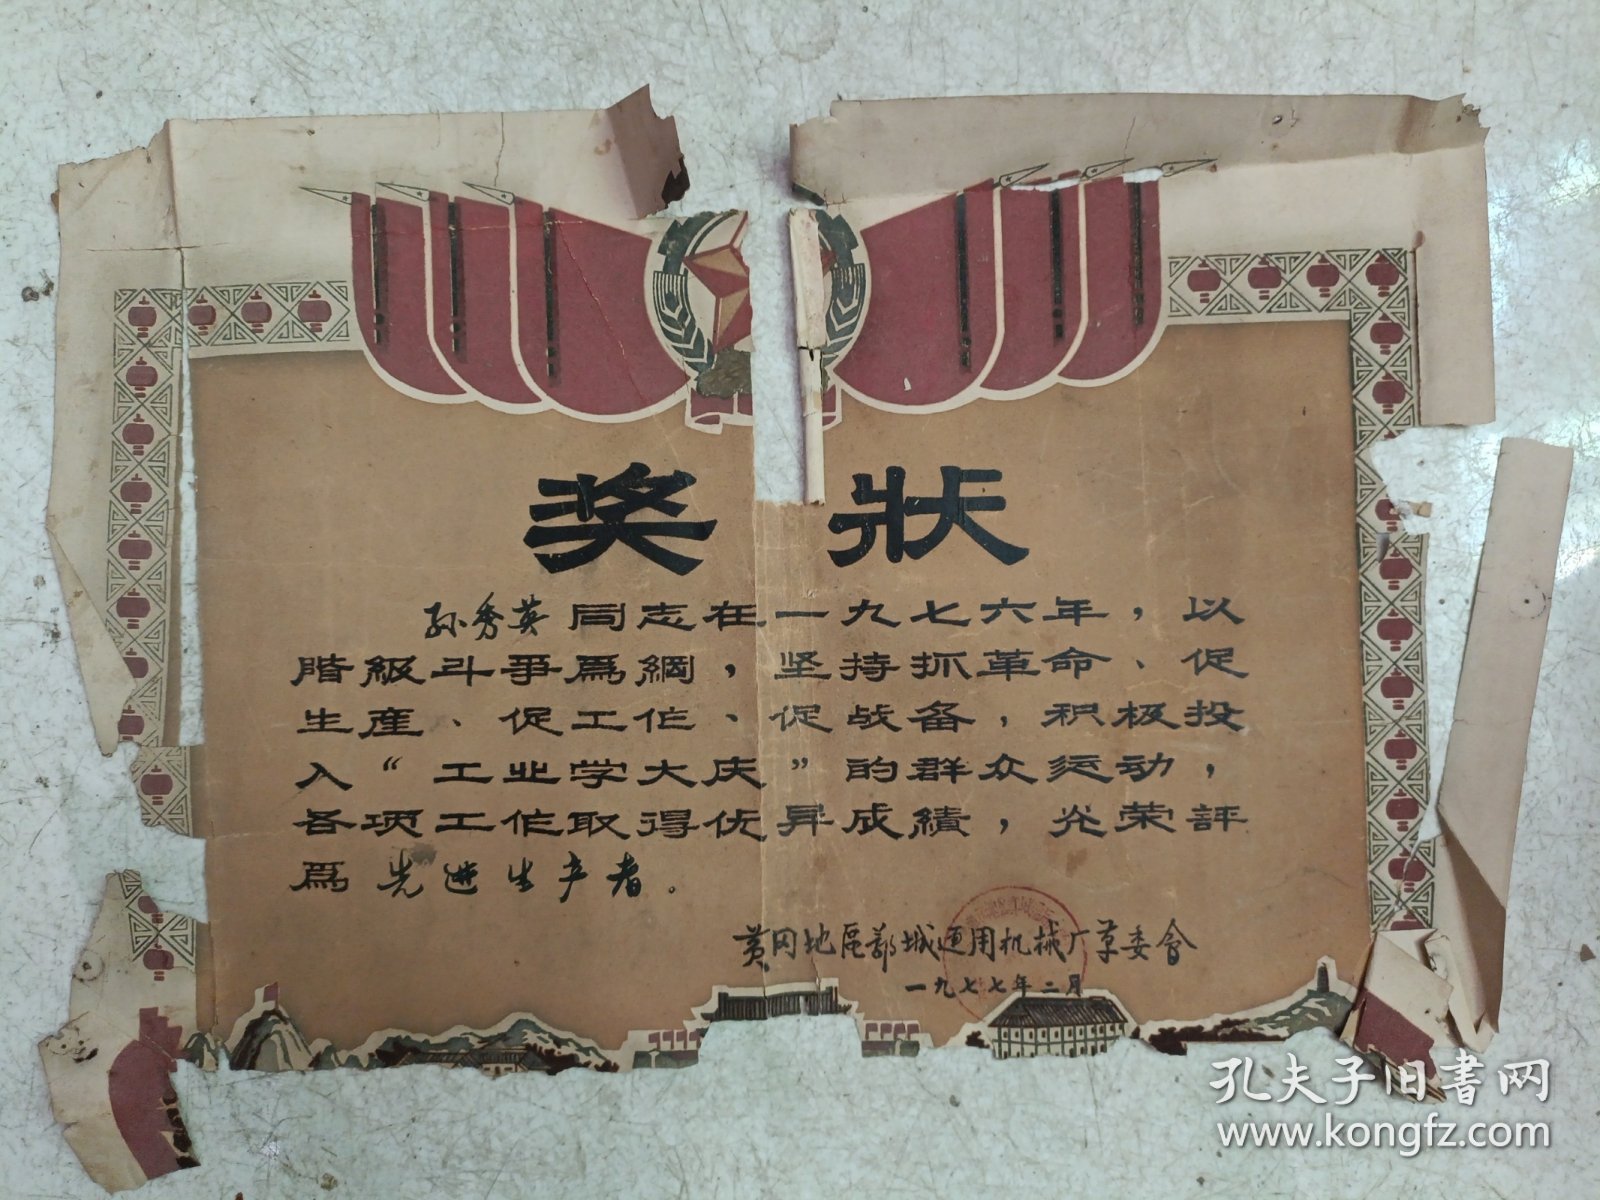 奖狀
孙秀英同志在一九七六年，以
階級斗爭爲綱，坚持抓革命、促
生產、促工作、促战备，积极投
入“工业学大庆”的群众运动，
各项工作取得优异成績，光荣評
爲先进生产者．
黄冈地区蕲城通用机械厂革委会
一九七七年二月
孔夫子旧書网
www.kongfz.com